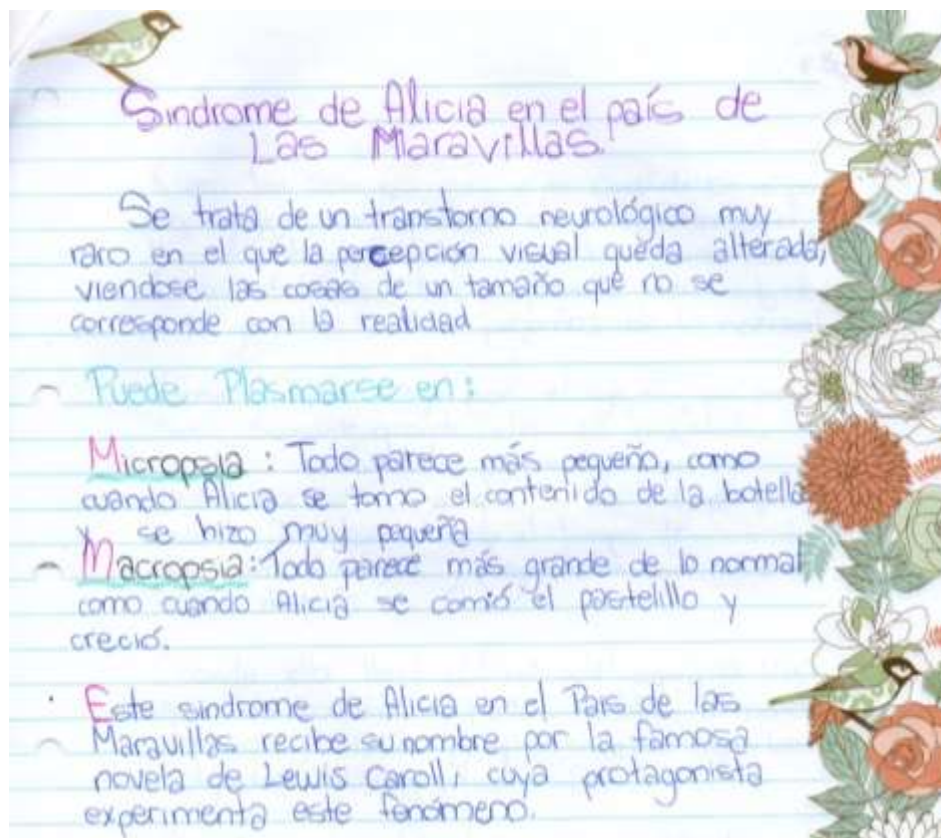 Sindrome de Alicia en el país de
Las Maravillas.
Se trata de un transtorno neurológico muy
raro en el que la percepción visual queda alterada,
viendose las cosas de un tamaño que no se
corresponde con la realidad
Puede Plasmarse en:
Micropsia : Todo parece más pequeño, como
cuando Alicia se tomo el contenido de la botella
y se hizo muy pequeña
Macropsia: Todo parece más grande de lo normal
como cuando Alicia se comió el pastelillo y
creció.
Este sindrome de Alicia en el Pais de las
Maravillas recibe su nombre por la famosa
novela de Lewis Caroll, cuya protagonista
experimenta este fenómeno.